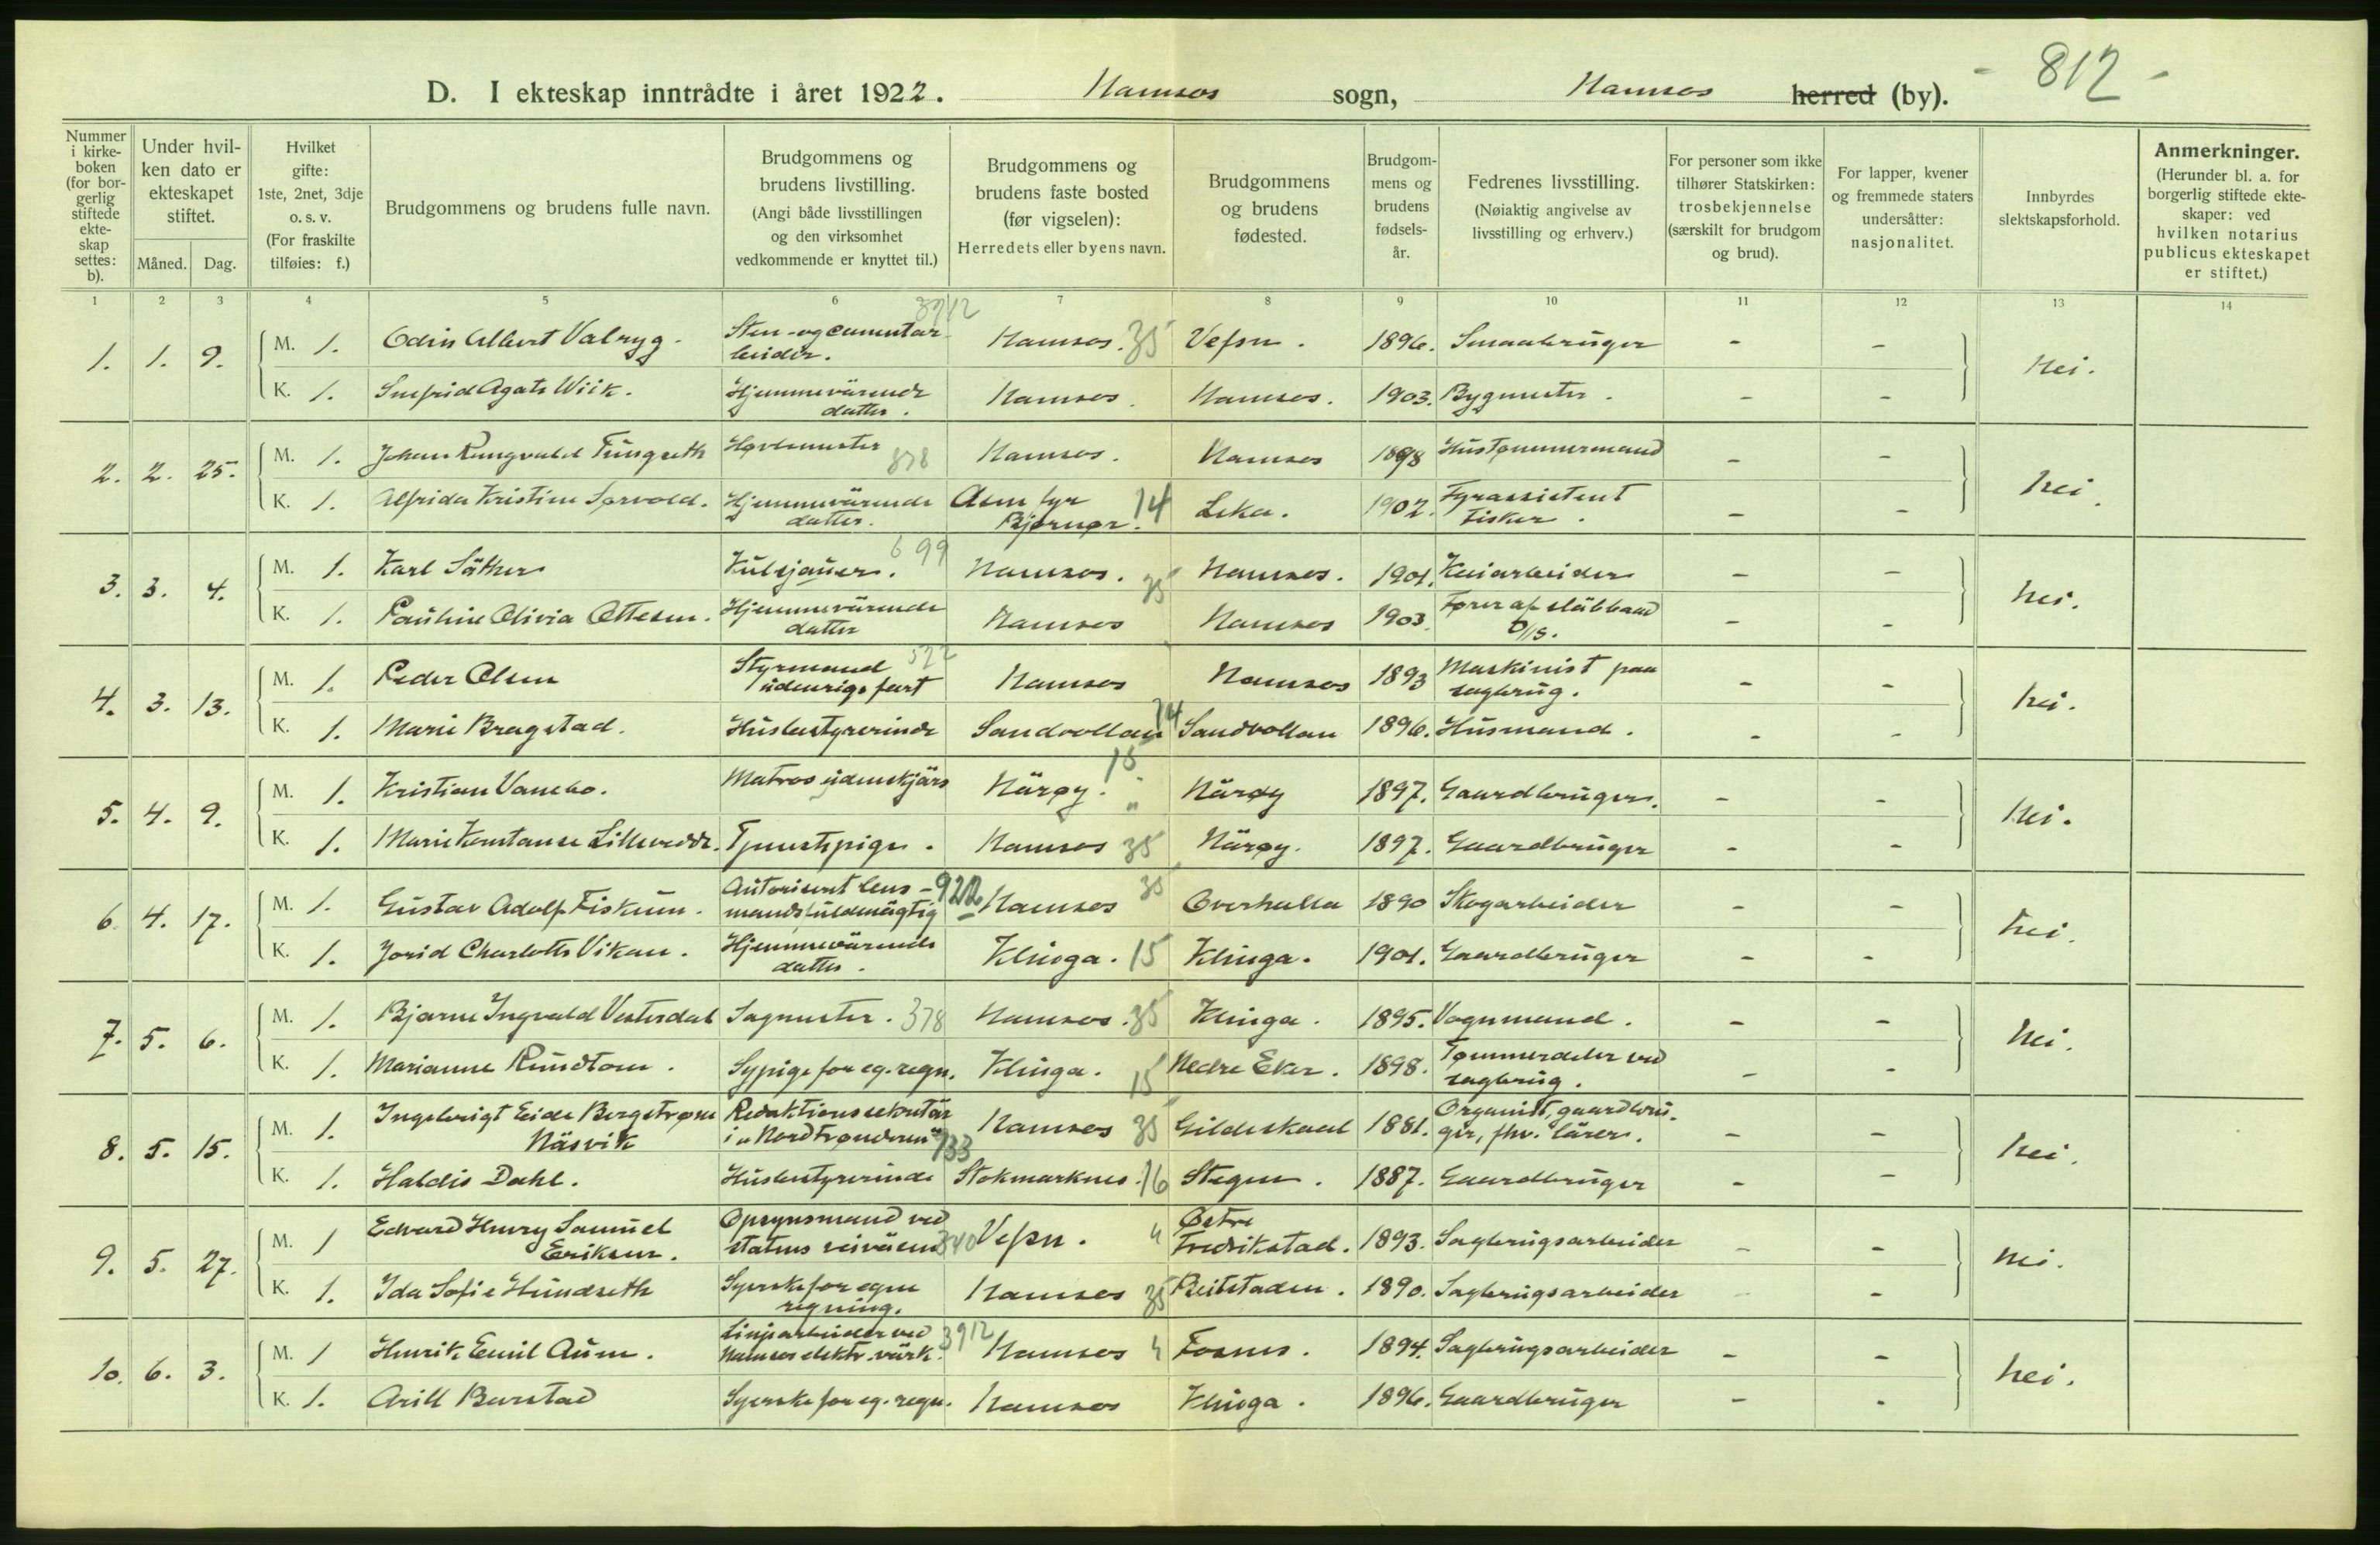 D. I ekteskap inntrådte i året 1922. Namsos sogn, Namsos herred (by). - 812 -
Nummer i kirkeboken (for borgerlig stiftede ekteskap settes: b).
Under hvilken dato er ekteskapet stiftet.
Måned. Dag.
Hvilket gifte: 1ste, 2net, 3dje o. s. v. (For fraskilte tilføies: f.)
Brudgommens og brudens fulle navn.
Brudgommens og brudens livstilling. (Angi både livsstillingen og den virksomhet vedkommende er knyttet til.)
Brudgommens og brudens faste bosted (før vigselen): Herredets eller byens navn.
Brudgommens og brudens fødested.
Brudgommens og brudens fødselsår.
Fedrenes livsstilling. (Nøiaktig angivelse av livsstilling og erhverv.)
For personer som ikke tilhører Statskirken: trosbekjennelse (særskilt for brudgom og brud).
For lapper, kvener og fremmede staters undersåtter: nasjonalitet.
Innbyrdes slektskapsforhold.
Anmerkninger. (Herunder bl. a. for borgerlig stiftede ekteskaper: ved hvilken notarius publicus ekteskapet er stiftet.)
1 2 3 4 5 6 7 8 9 10 11 12 13 14
1. 1. 9. M. 1. Odin Albert Valryg. Sten- og cementarbeider. 3912 Namsos. 35 Vefsn. 1896. Smaabruger - - Nei.
K. 1. Snefrid Agate Wiik. Hjemmeværende datter. Namsos. Namsos. 1903. Bygmester. - -
2. 2. 25. M. 1. Johan Rangvald Tungseth Høvlemester 378 Namsos. Namsos 1898 Hustømmermand - - Nei.
K. 1. Alfrida Kristine Sørvold. Hjemmeværende datter. Asen fyr Bjørnør. 14 Leka. 1902. Fyrassistent Fisker. - -
3. 3. 4. M. 1. Karl Säther Kulsjauer. 699 Namsos. 35 Namsos. 1901. Kaiarbeider - - Nei.
K. 1. Pauline Olivia Ottesen. Hjemmeværende datter Namsos Namsos 1903. Fører af släbbaad D/S. - -
4. 3. 13. M. 1. Peder Olsen Styrmand udenrigs fart 522 Namsos Namsos 1893 Maskinist paa sagbrug. - - Nei.
K. 1. Marie Bragstad. Husbestyrerinde Sandvollan 14 Sandvollan 1896. Husmand. - -
5. 4. 9. M. 1. Kristian Vanebo. Matros udenskjärs Näröy. 15 Näröy 1897. Gaardbruger. - - Nei.
K. 1. Marie Konstanse Lillevedde. Tjenestepige. Namsos 35 Näröy. 1897. Gaardbruger - -
6. 4. 17. M. 1. Gustav Adolf Fiskum. Autorisert lensmandsfuldmägtig Namsos 35 Overhalla 1890 Skogarbeider - - Nei.
K. 1. Jorid Charlotte Vikan. Hjemmeværende datter. Klinga. 15 Klinga. 1901. Gaardbruger - -
7. 5. 6. M. 1. Bjarne Ingvald Vesterdal Sagmester. 378 Namsos. 35 Klinga. 1895. Vognmand. - - Nei.
K. 1. Marianne Rundtom. Sypige for eg. regn. Klinga. 15 Nedre Eker. 1898. Tømmerdeler ved sagbrug. - -
8. 5. 15. M. 1. Ingebrigt Eide Bergstrøm Näsvik Redaktionssekretär i "Nordtrønderen" 933 Namsos 35 Gildeskaal 1881. Organist, gaardbruger, fhv. lärer. - - Nei.
K. 1. Haldis Dahl. Husbestyrerinde Stokmarknes. 16 Stegen. 1887. Gaardbruger - -
9. 5. 27. M. 1 Edvard Henry Samuel Eriksen. Opsynsmand ved statens veiväsen 340 Vefsn. 4 Østre Fredrikstad. 1893. Sagbrugsarbeider - - Nei.
K. 1. Ida Sofie Hundseth Syerske for egen regning. Namsos 35 Beitstaden. 1890. Sagbrugsarbeider - -
10. 6. 3. M. 1 Henrik Emil Aune. Linjearbeider ved Namsos elektr. värk. 3912 Namsos 4 Fosnes. 1894. Sagbrugsarbeider - - Nei.
K. 1. Arill Burstad Syerske for eg. regn. Namsos Klinga. 1896. Gaardbruger - -